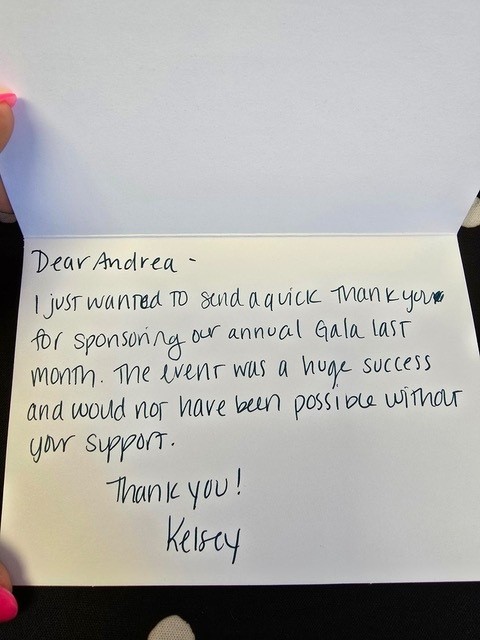 Dear Andrea -
I just wanted to send a quick thank you
for sponsoring our annual Gala last
month. The event was a huge success
and would not have been possible without
your support.
Thank you!
Kelsey